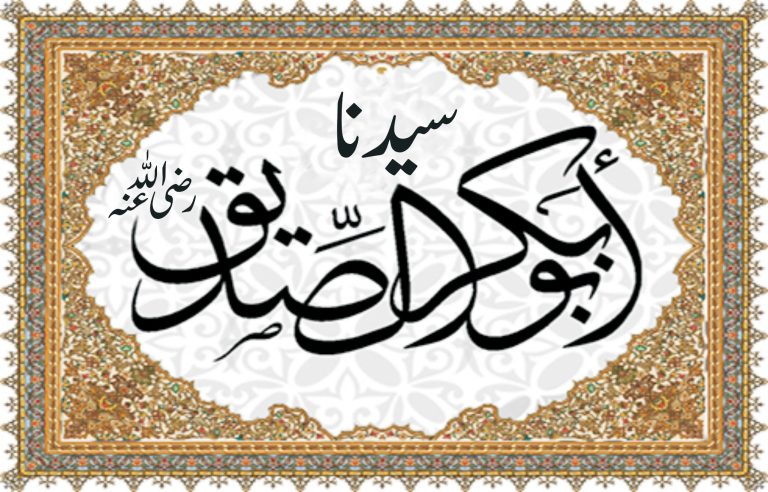 سیدنا
أبو بكر الصّديق
رضی اللہ عنہ